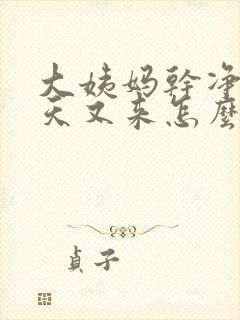 大姨妈幹净
天又来怎麼
貞子